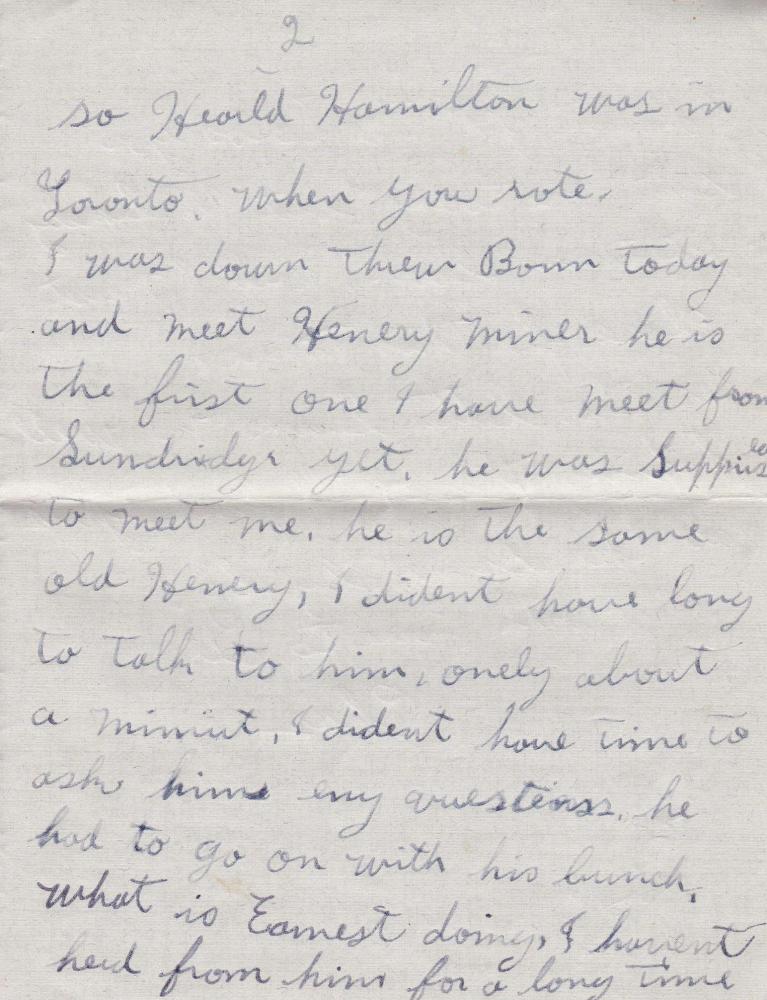 2
so Hearld Hamilton was in
Toronto. when you rote.
I was down threw Bonn today
and meet Henery miner he is
the first one I have meet from
Sundridge yet. he was supprised
to meet me. he is the same
old Henery, I dident have long
to talk to him, onely about
a miniut, I dident have time to
ask him eny questions. he
had to go on with his bunch.
what is Earnest doing, I havent
herd from him for a long time